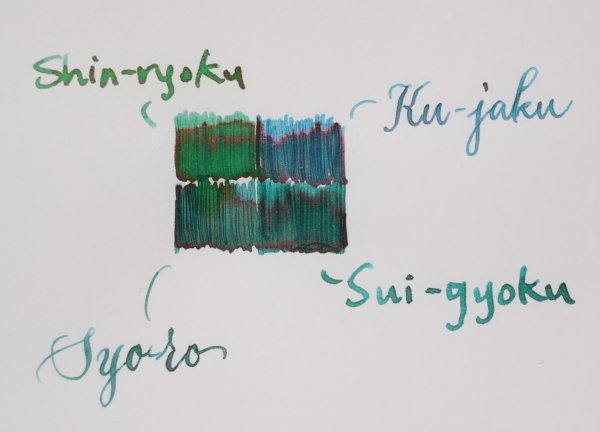 Shin-ryoku
Ku-jaku
Sui-gyoku
Syo-ro